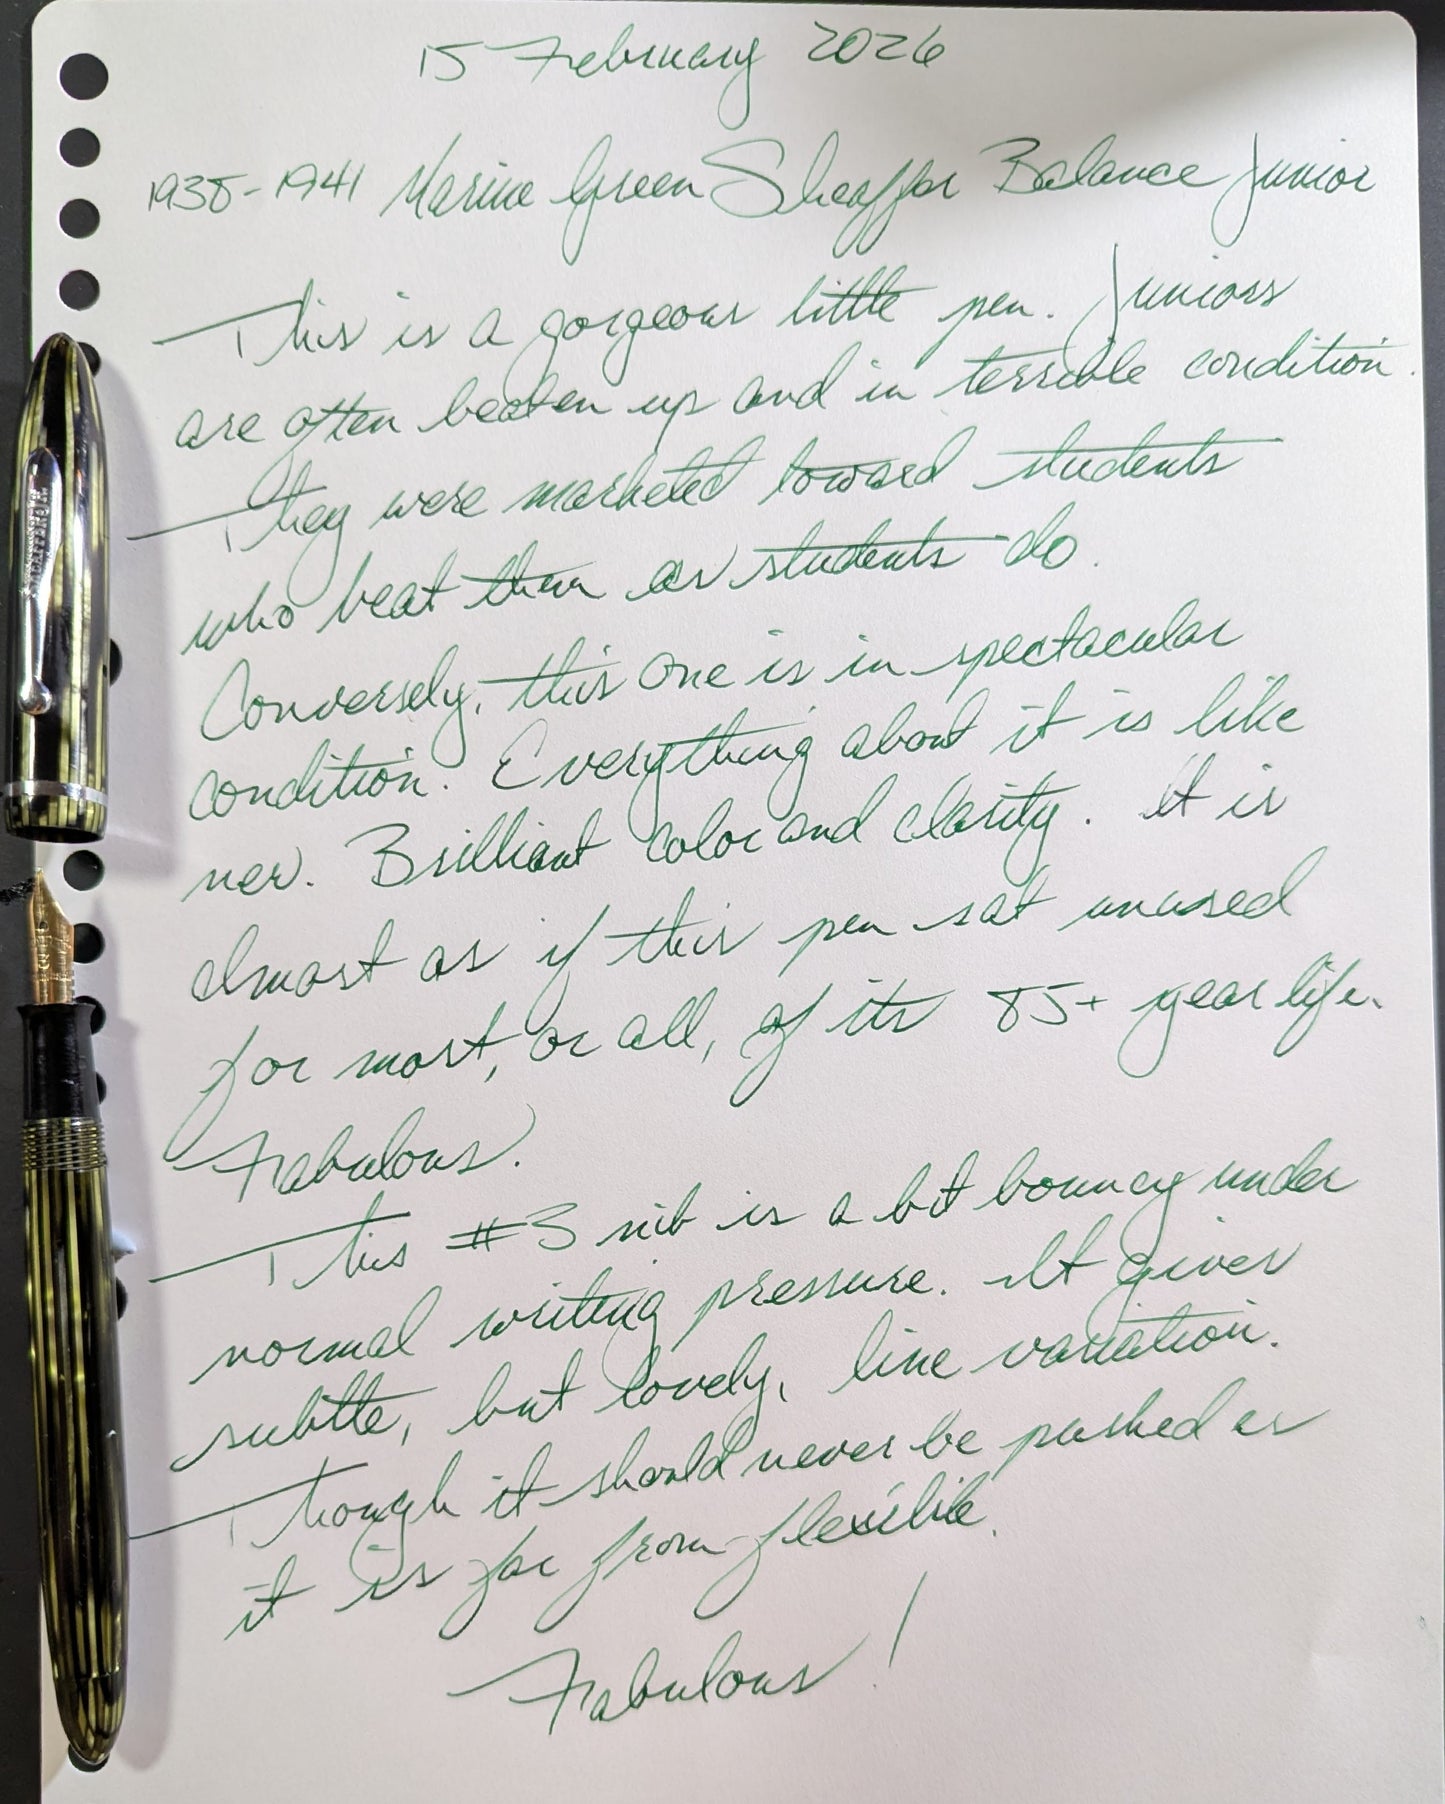 15 February 2026
1938-1941 Marine Green Sheaffer Balance Junior
This is a gorgeous little pen. Juniors
are often beaten up and in terrible condition.
They were marketed toward students
who beat them as students do.
Conversely, this one is in spectacular
condition. Everything about it is like
new. Brilliant color and clarity. It is
almost as if this pen sat unused
for most, or all, of its 85+ year life.
Fabulous.
This #3 nib is a bit bouncy under
normal writing pressure. It gives
subtle, but lovely, line variation.
Though it should never be pushed as
it is far from flexible.
Fabulous!
SHEAFFER'S
3